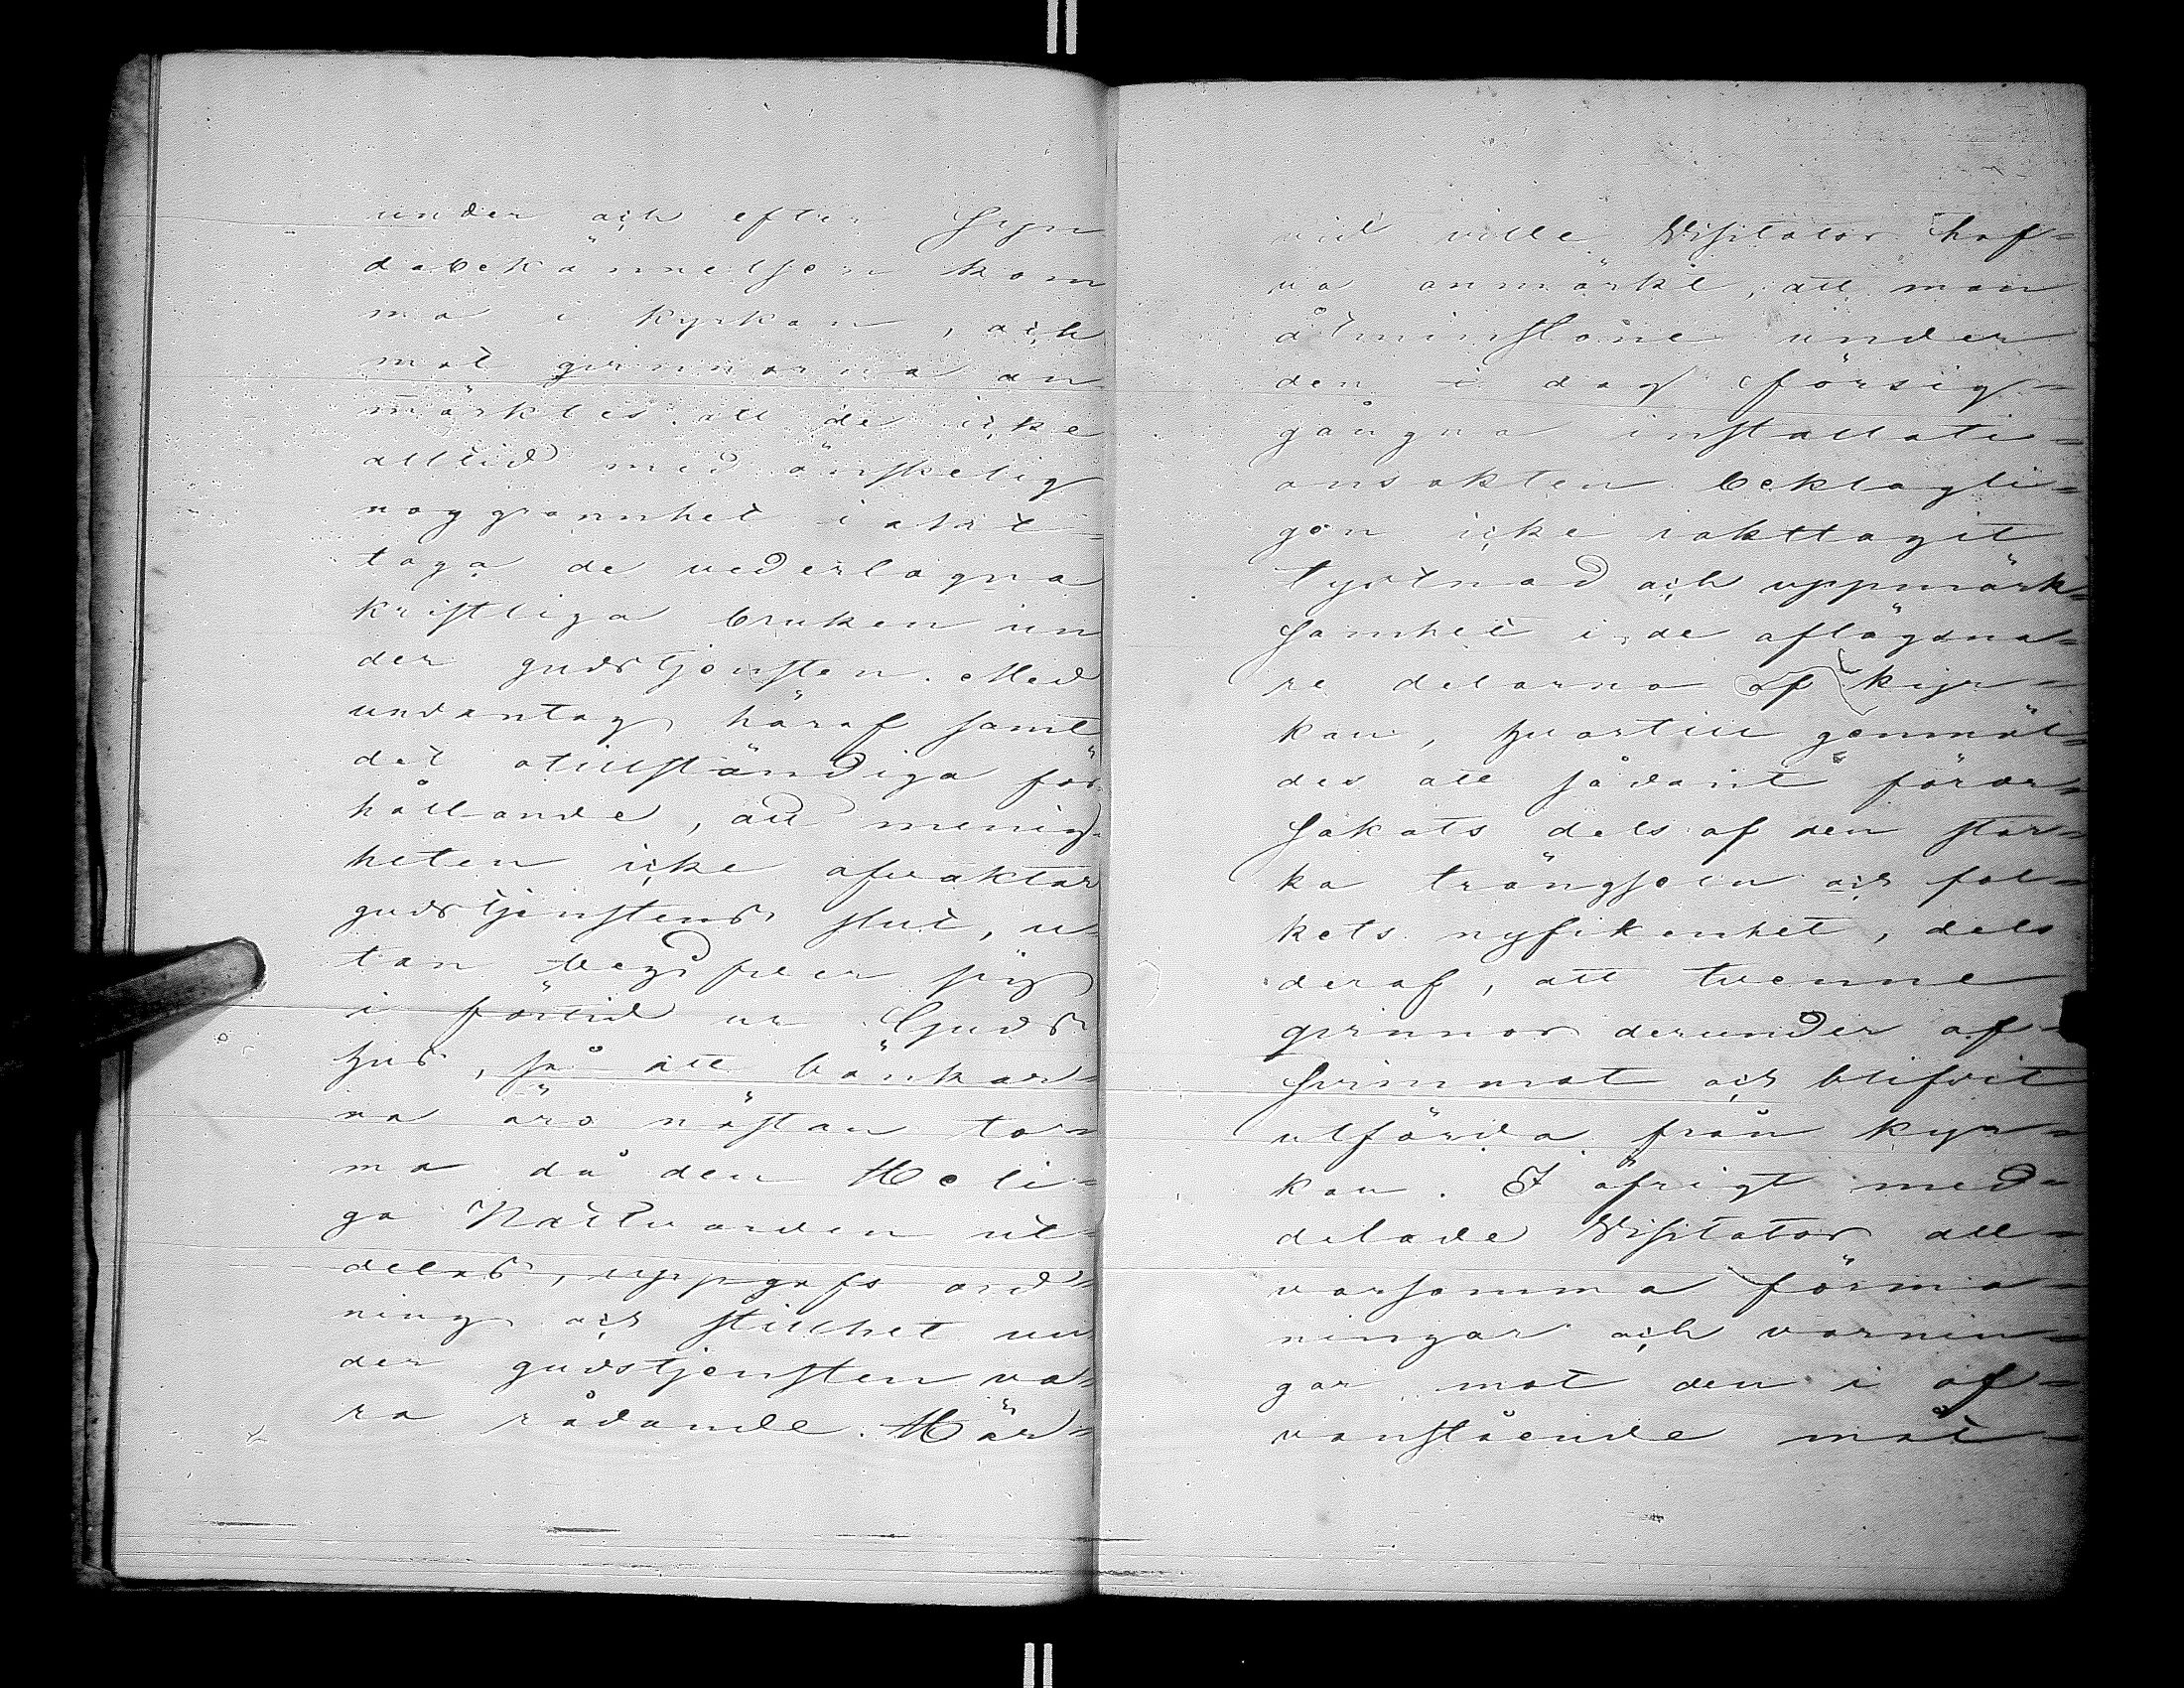 under och efter Syn
dabekännelsen kom
ma i kyrkan, och
mot qvinnorna an
märktes att de icke
alltid med önskelig
noggrannhet iakt-
taga de vedertagna
kristliga bruken un
der gudstjensten. Med
undantag häraf samt
det otillständiga för
hållande, att menig-
heten icke afvaktar
gudstjenstens slut, u-
tan begifver sig
i förtid ur Guds
hus, så att bänkar-
na äro nästan tom-
ma då den Heli-
ga Nattvarden ut-
delas, uppgafs ord-
ning och stillhet un
der gudstjensten va-
ra rådande. Här-
vid ville Visitator haf-
va anmärkt, att man
åtminstone under
den i dag försig-
gångna installati-
onsakten beklagli-
gen icke iakttagit
tystnad och uppmärk-
samhet i de aflägsna-
re delarna af kyr-
kan, hvartill genmäl-
des att sådant föror-
sakats dels af den star-
ka trängseln och fol-
kets nyfikenhet, dels
deraf, att tvenne
qvinnor derunder af-
svimmat och blifvit
utförda från kyr-
kan. I öfrigt med-
delade Visitator all-
varsamma förma-
ningar och varnin-
gar mot den i of-
vanstående mot-